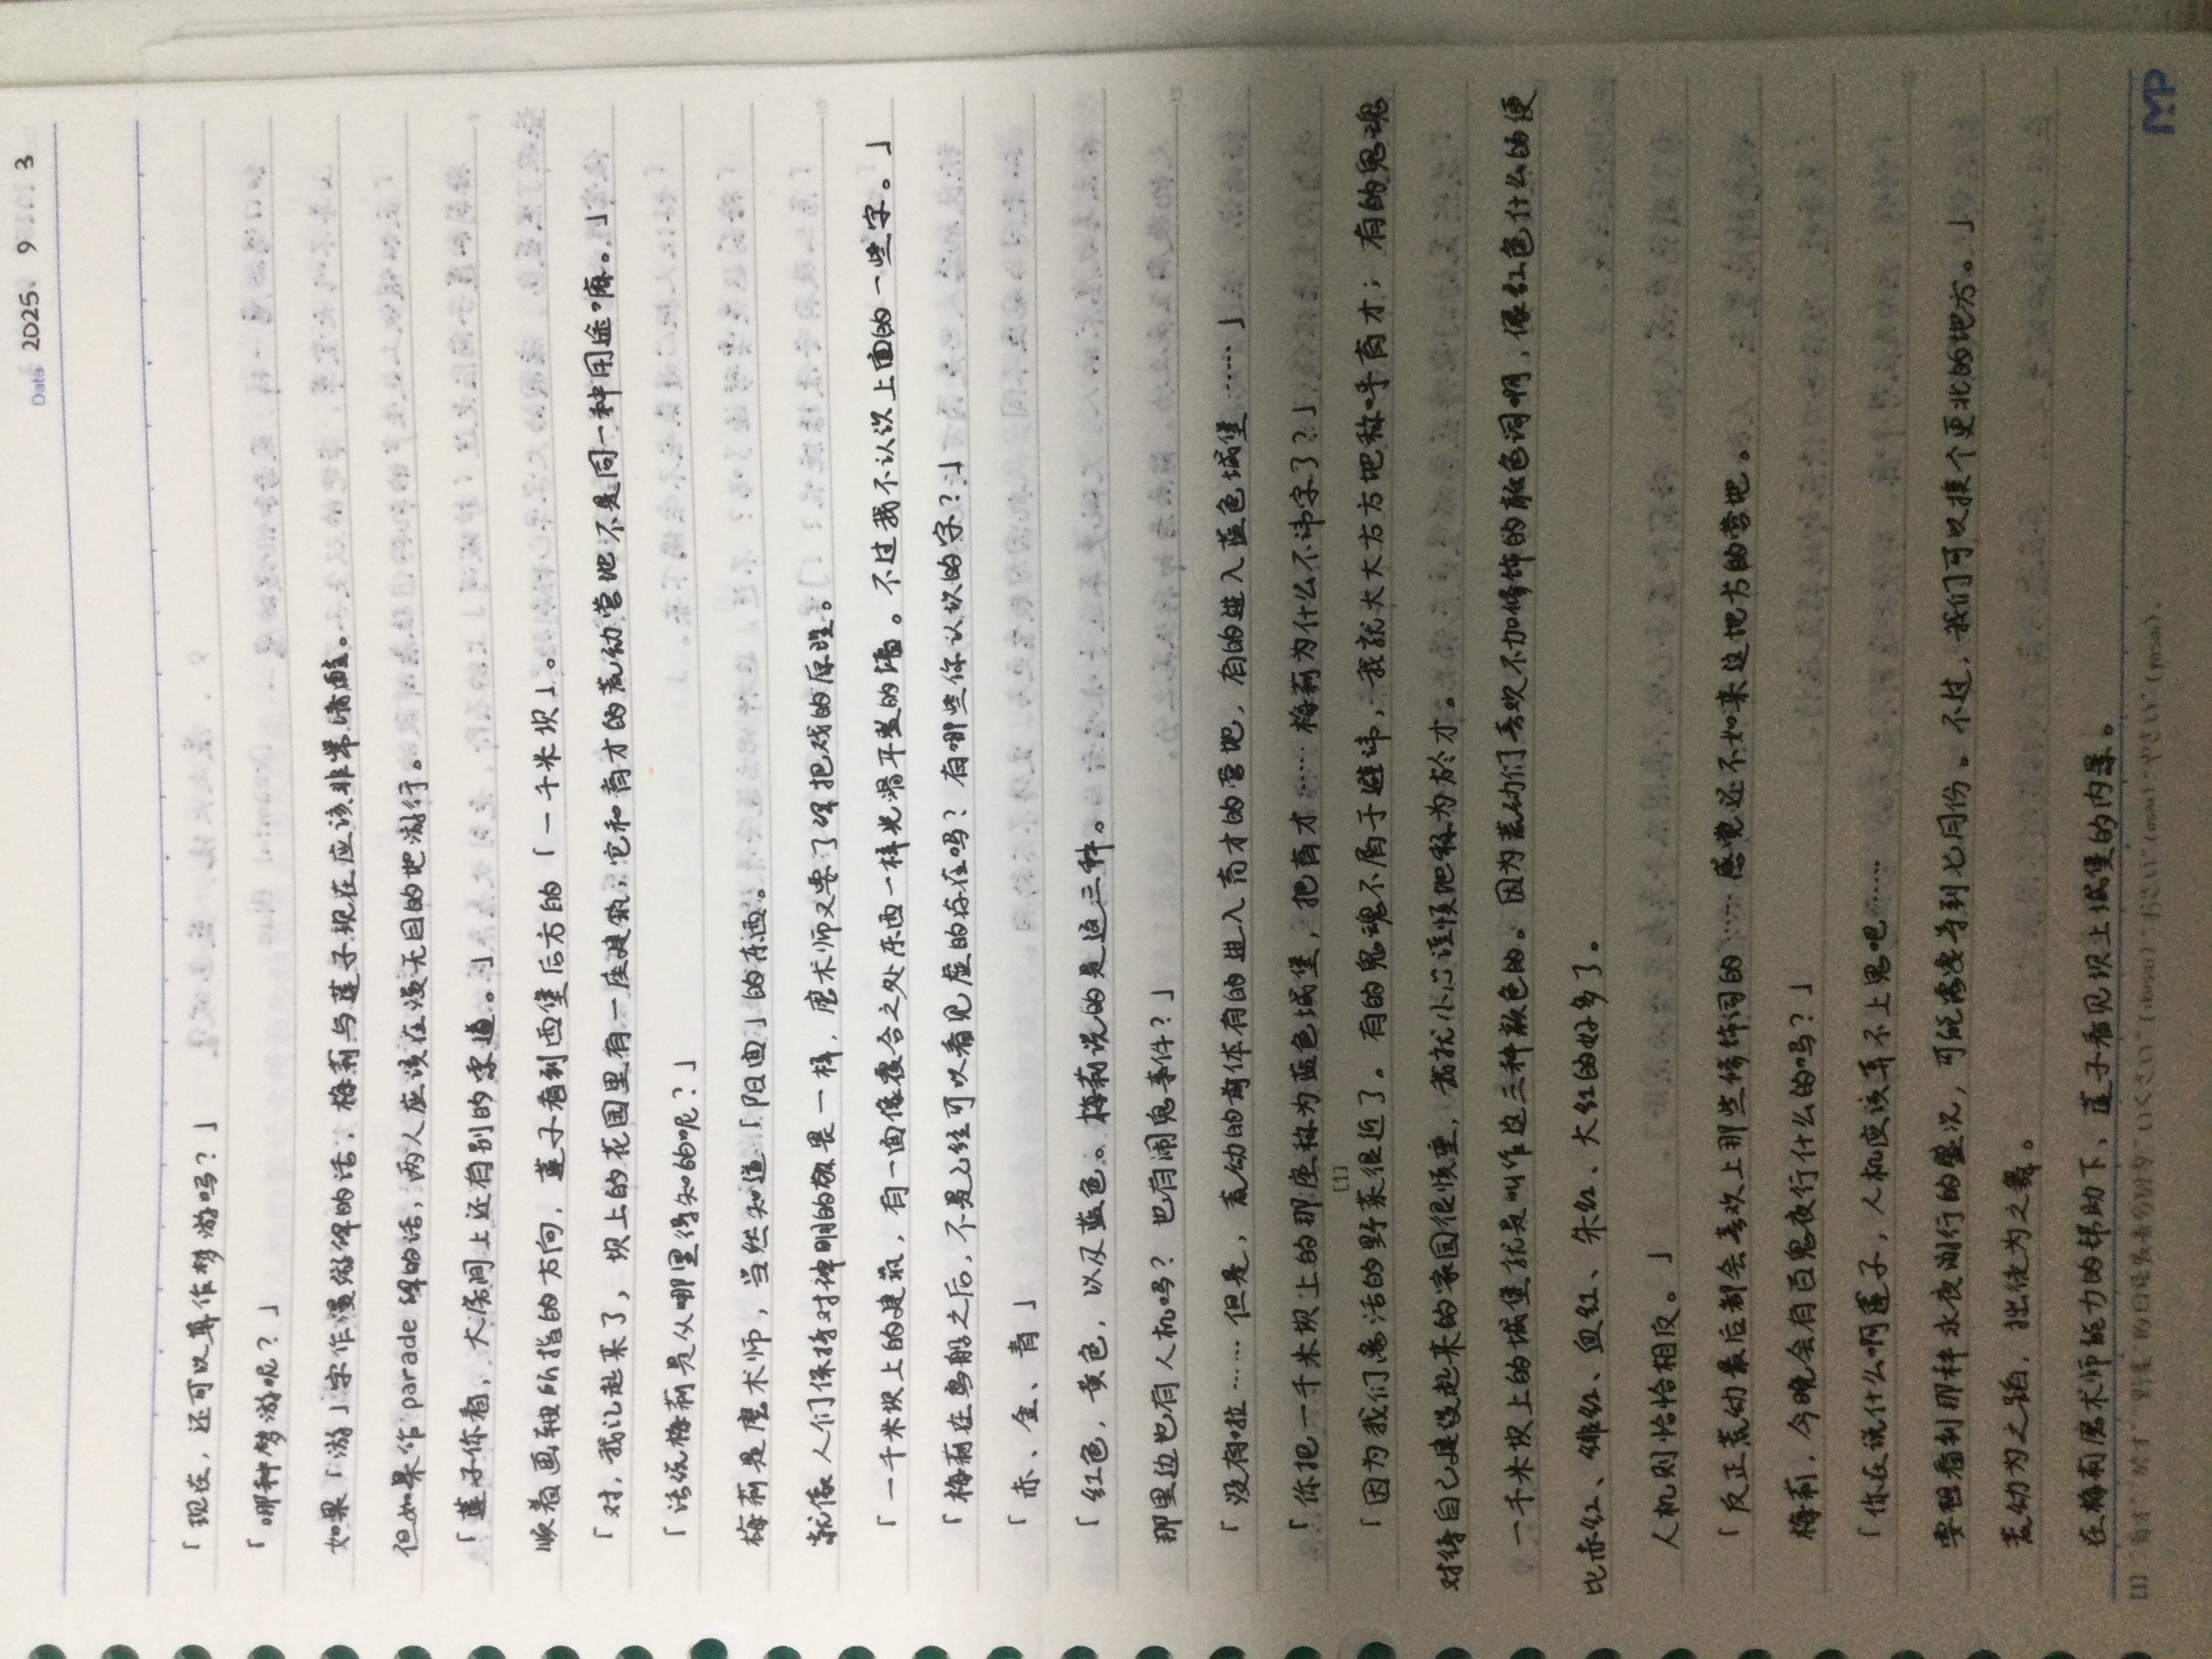 Date 2025. 9 3
「现在，还可以算作梦游吗？」
「哪种梦游呢？」
如果「游」字作漫游解的话，梅莉与莲子现在应该非常清醒。
但如果作 parade 解的话，两人应该在漫无目的地游行。
「莲子你看，大房间上还有别的索道。」
顺着画轴所指的方向，莲子看到西堡后方的「一千米坝」。
「对，我记起来了，坝上的花园里有一座建筑，它和育才的荒幼营地不是同一种用途嘛。」
「话说梅莉是从哪里得知的呢？」
梅莉是魔术师，当然知道「阳面」的东西。
就像人们保持对神明的敬畏一样，魔术师又要了解把戏的原理。
「一千米坝上的建筑，有一面像覆合之处东西一样光滑平整的墙。不过我不认识上面的一些字。」
「梅莉在鸟船之后，不是已经可以看见虚的存在吗？有哪些你认识的字？」
「赤、金、青」
「红色，黄色，以及蓝色。梅莉说的是这三种。
那里边也有人机吗？也有闹鬼事件？」
「没有啦……但是，荒幼的前体有的进入育才的营地，有的进入蓝色城堡……」
「你把一千米坝上的那座称为蓝色城堡，把育才……梅莉为什么不讳字了？」
「因为我们离活的野菜[1]很近了。有的鬼魂不屑于避讳，我就大大方方地称呼育才；有的鬼魂
对待自己建设起来的家园很慎重，我就小心谨慎地称为於才。
一千米坝上的城堡就是叫作这三种颜色的。因为荒幼们喜欢不加修饰的颜色词啊，像红色什么的便
比赤红、绯红、血红、朱红、大红的好多了。
人机则恰恰相反。」
「反正荒幼最后都会喜欢上那些修饰词的……感觉还不如来这地方的营地。
梅莉，今晚会有百鬼夜行什么的吗？」
「你在说什么啊莲子，人机应该算不上鬼吧……
要想看到那种永夜游行的盛况，可能需要等到七月份。不过，我们可以换个更北的地方。」
荒幼为之蹈，拙徒为之舞。
在梅莉魔术师能力的帮助下，莲子看见坝上城堡的内景。
[1] "育才" "於才" "野菜" 的日语发音分别为 "いくさい" (ikusai) "おさい" (osai) "やさい" (yasai)。
MP